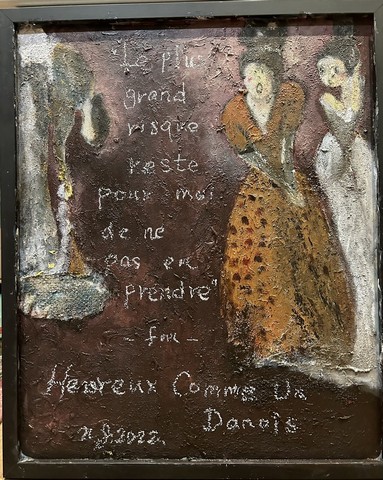 "Le plus
grand
risque
reste
pour moi
de ne
pas en
prendre"
Heureux Comme Un
Danois
2022.